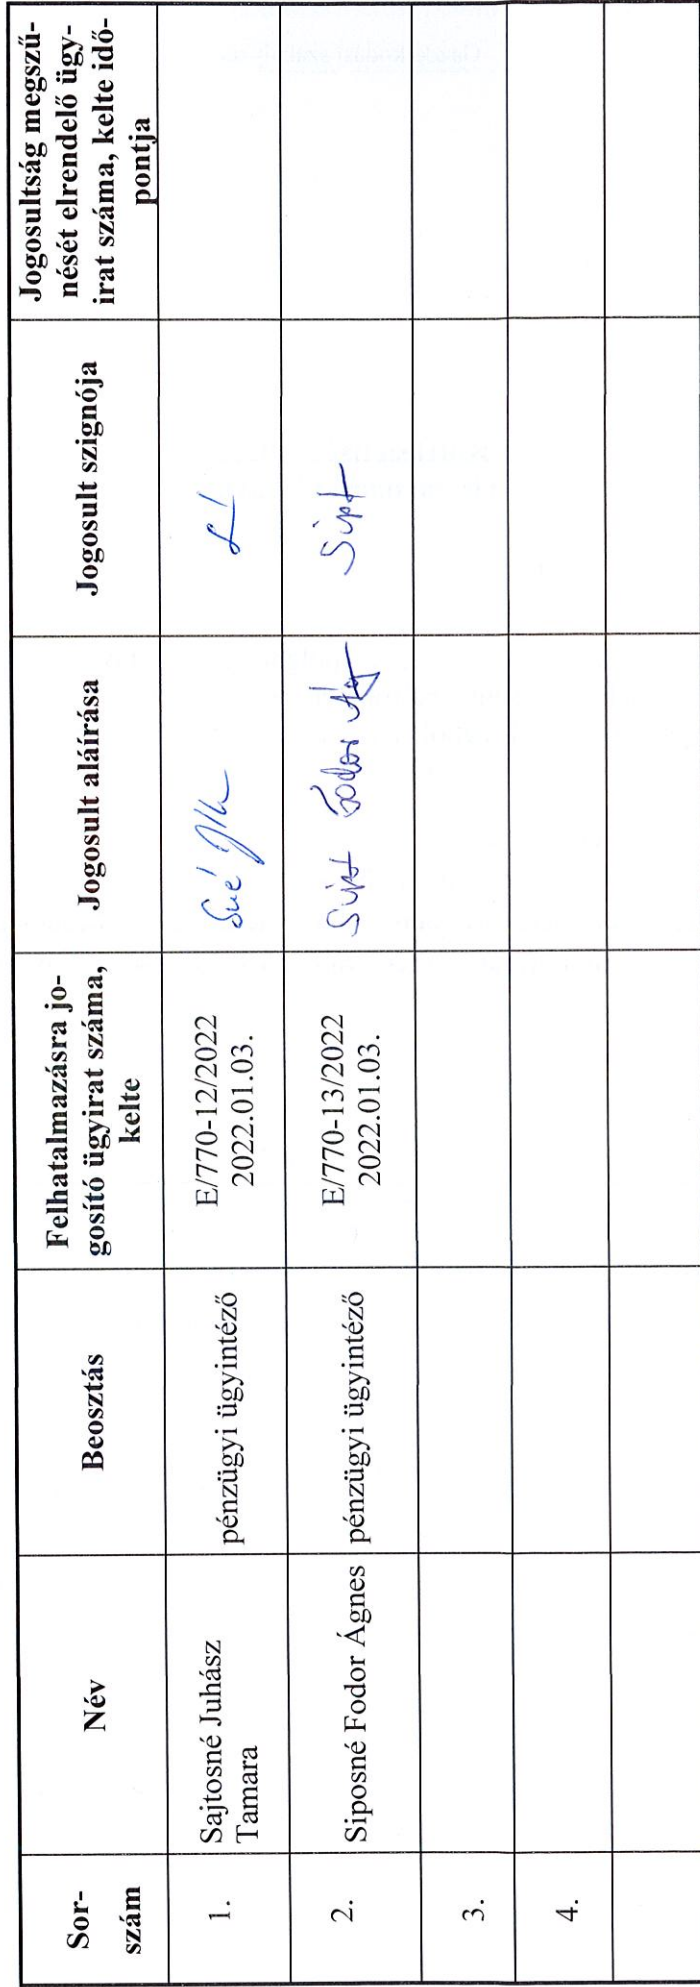 Sor-
szám
Név
Beosztás
Felhatalmazásra jo-
gosító ügyirat száma,
kelte
Jogosult aláírása
Jogosult szignója
Jogosultság megszű-
nését elrendelő ügy-
irat száma, kelte idő-
pontja
1.
Sajtosné Juhász
Tamara
pénzügyi ügyintéző
E/770-12/2022
2022.01.03.
2.
Siposné Fodor Ágnes
pénzügyi ügyintéző
E/770-13/2022
2022.01.03.
Fodor
3.
4.